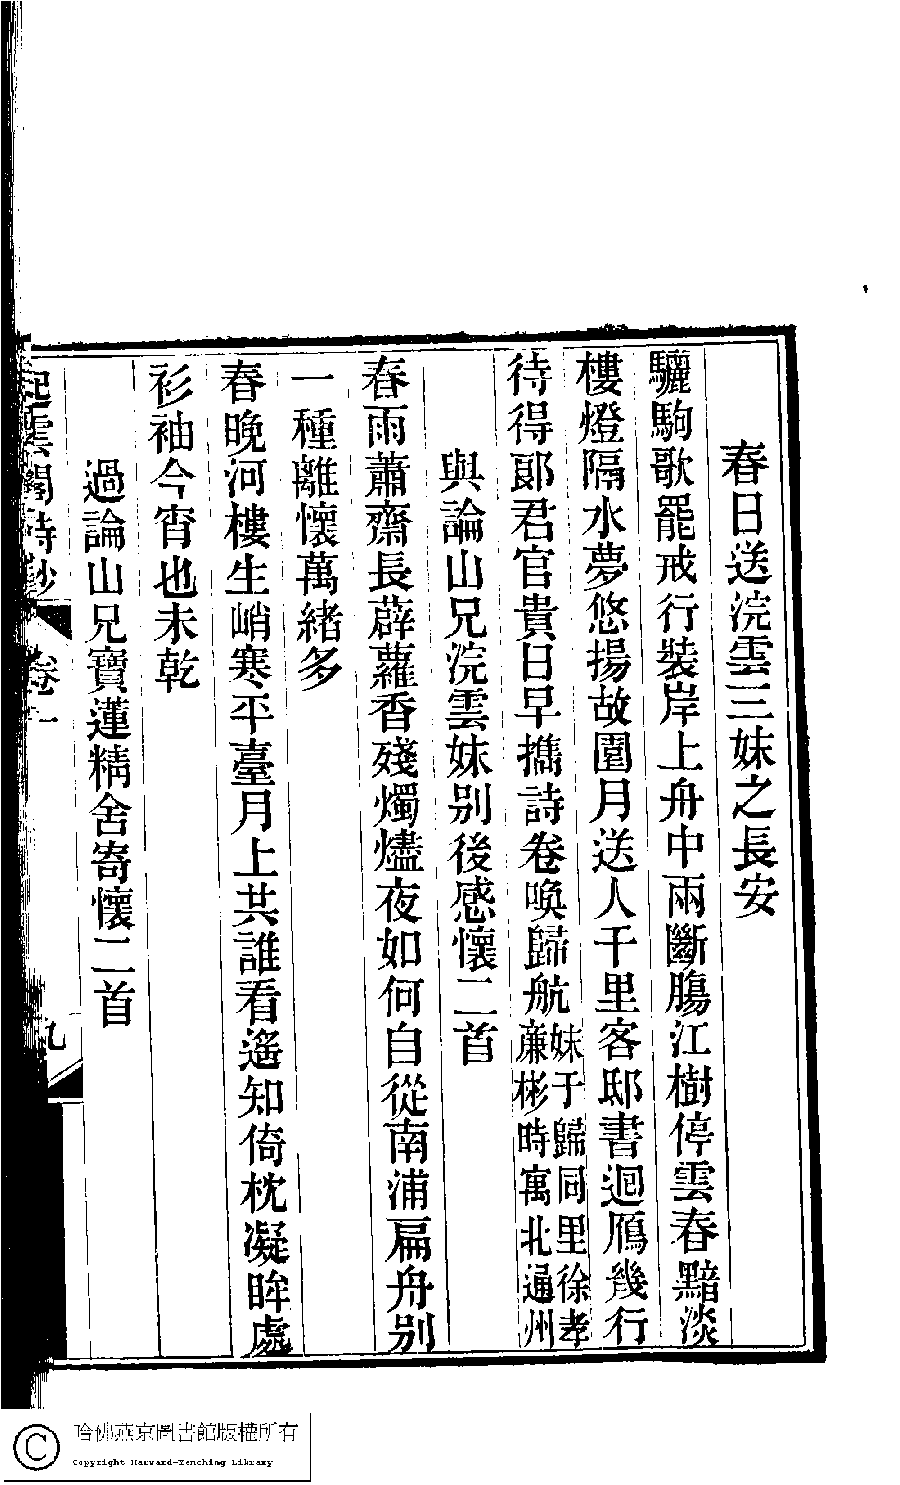 春日送浣雲三妹之長安
驪駒歌罷戒行裝岸上舟中兩斷膓江樹停雲春黯淡
樓燈隔水夢悠揚故園月送人千里客邸書迴鴈幾行
待得郞君官貴日早擕詩卷喚歸航妹于歸同里徐孝
廉彬時寓北通州
與論山兄浣雲妹别後感懷二首
春雨蕭齋長薜蘿香殘燭燼夜如何自從南浦扁舟别
一種離懷萬緒多
春晚河樓生峭寒平臺月上共誰看遙知倚枕凝眸處
衫袖今宵也未乾
過論山兄寶蓮精舍寄懷二首
起雲閣詩鈔 卷一 九
哈佛燕京圖書館版權所有
Copyright Harvard-Yenching Library